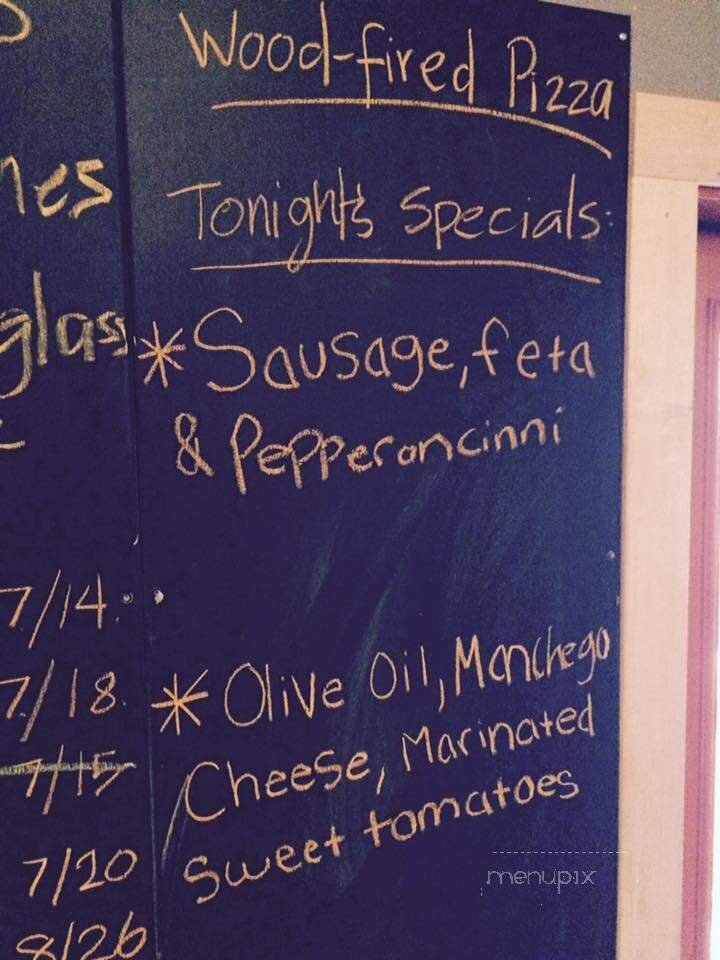 nes
glas
7/14.
7/18.
7/15
7/20
8/26
Wood-fired Pizza
Tonight's Specials:
*Sausage, feta
& Pepperoncinni
* Olive Oil, Manchego
Cheese, Marinated
Sweet tomatoes
menupix